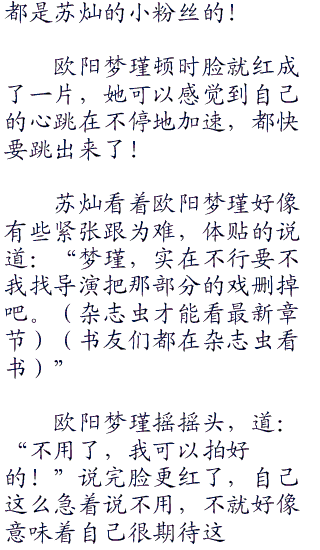 都是苏灿的小粉丝的！
欧阳梦瑾顿时脸就红成
了一片，她可以感觉到自己
的心跳在不停地加速，都快
要跳出来了！
苏灿看着欧阳梦瑾好像
有些紧张跟为难，体贴的说
道：“梦瑾，实在不行要不
我找导演把那部分的戏删掉
吧。（杂志虫才能看最新章
节）（书友们都在杂志虫看
书）”
欧阳梦瑾摇摇头，道：
“不用了，我可以拍好
的！”说完脸更红了，自己
这么急着说不用，不就好像
意味着自己很期待这